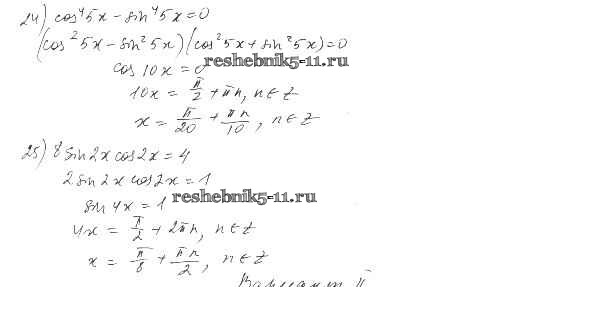 24) cos⁴5x - sin⁴5x = 0
(cos²5x - sin²5x)(cos²5x + sin²5x) = 0
cos 10x = 0
reshebnik5-11.ru
10x = π/2 + πn, n ∈ Z
x = π/20 + πn/10, n ∈ Z
25) 8 sin2x cos2x = 4
2 sin2x cos2x = 1
reshebnik5-11.ru
sin 4x = 1
4x = π/2 + 2πn, n ∈ Z
x = π/8 + πn/2, n ∈ Z